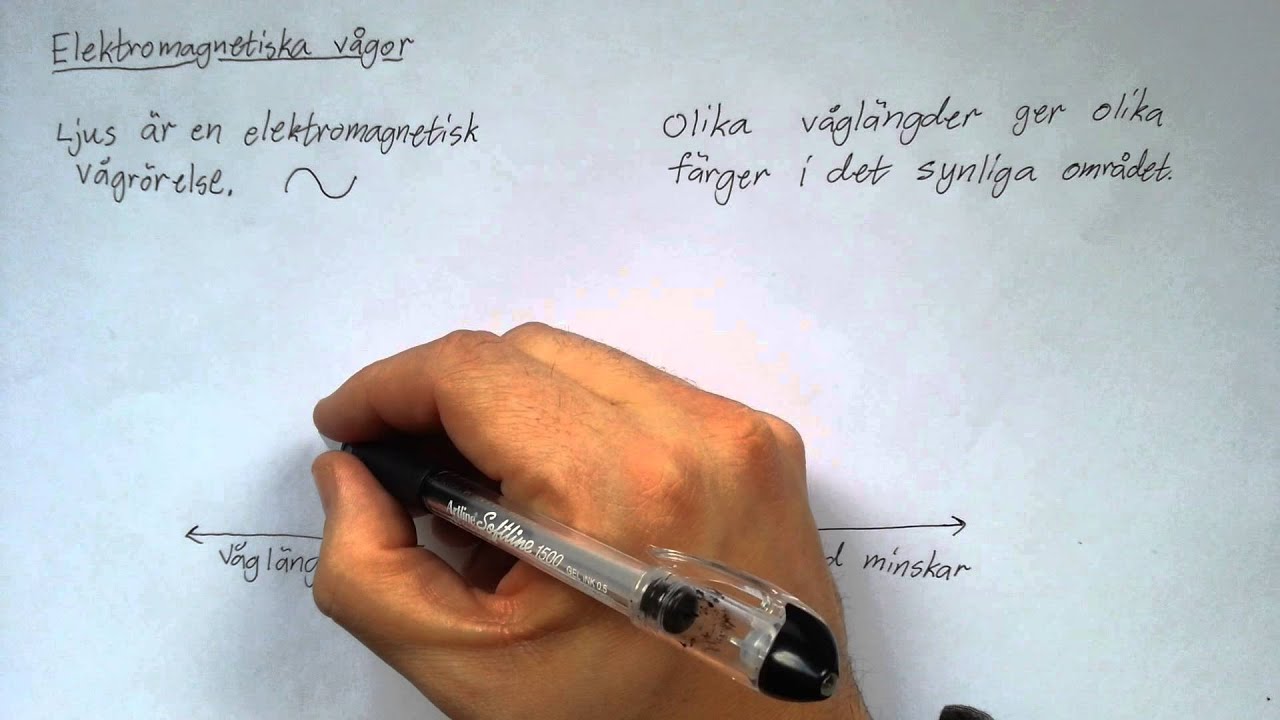 Elektromagnetiska vågor
Ljus är en elektromagnetisk
vågrörelse.
Olika våglängder ger olika
färger i det synliga området.
Artline Softline 1500 GEL INK 0.5
Vågläng
d minskar